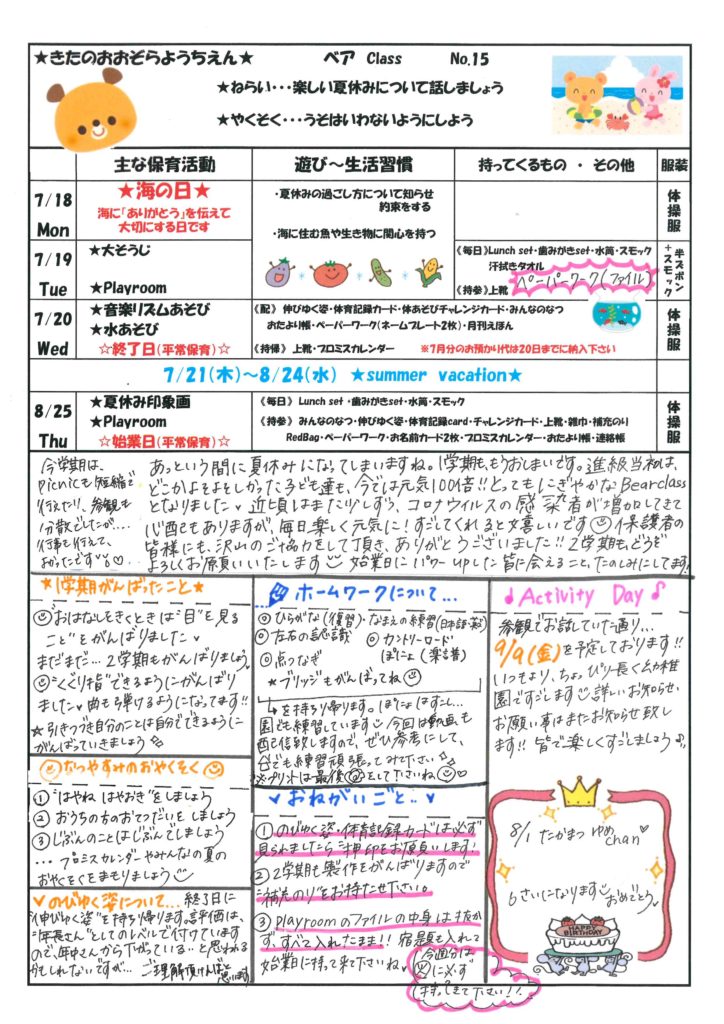 ★きたのおおぞらようちえん★　ベア Class　No.15
★ねらい・・・楽しい夏休みについて話しましょう
★やくそく・・・うそはいわないようにしよう
主な保育活動　遊び～生活習慣　持ってくるもの ・ その他　服装
7/18 Mon
★海の日★
海に「ありがとう」を伝えて
大切にする日です
・夏休みの過ごし方について知らせ
約束をする
・海に住む魚や生き物に関心を持つ
体操服
7/19 Tue
★大そうじ
★Playroom
《毎日》Lunch set・歯みがきset・水筒・スモック
汗拭きタオル
《持参》上靴 ペーパーワーク(ファイル)
半ズボン+スモック
7/20 Wed
★音楽リズムあそび
★水あそび
☆終了日(平常保育)☆
《配》 伸びゆく姿・体育記録カード・体あそびチャレンジカード・みんなのなつ
おたより帳・ペーパーワーク(ネームプレート2枚)・月刊えほん
《持帰》 上靴・プロミスカレンダー　※7月分のお預かり代は20日までに納入下さい
体操服
7/21(木)～8/24(水) ★summer vacation★
8/25 Thu
★夏休み印象画
★Playroom
☆始業日(平常保育)☆
《毎日》 Lunch set・歯みがきset・水筒・スモック
《持参》 みんなのなつ・伸びゆく姿・体育記録card・チャレンジカード・上靴・雑巾・補充のり
RedBag・ペーパーワーク・お名前カード2枚・プロミスカレンダー・おたより帳・連絡帳
体操服
今学期は、
picnicも短縮で
行えたり、参観も
分散でしたが…
行事も行えて、
よかったです
あっという間に夏休みになってしまいますね。1学期も、もうおしまいです。進級当初は、
どこかよそよそしかった子ども達も、今では元気100倍!!とってもにぎやかなBearclass
となりました♥ 近頃はまた少しずつ、コロナウイルスの感染者が増加してきて
心配もありますが、毎日楽しく元気に!すごしてくれると嬉しいです 保護者の
皆様にも、沢山のご協力をして頂き、ありがとうございました!! 2学期も、どうぞ
よろしくお願いいたします 始業日にパワーupした皆に会えること、たのしみにしてます!
★1学期がんばったこと★
おはなしをきくときは“目”を見る
こと”をがんばりました♥
まだまだ…2学期もがんばりましょう
“くぐり指”できるようにがんばり
ました♥曲も弾けるようになってます!!
★引きつづき自分のことは自分でできるように
がんばっていきましょう
なつやすみのおやくそく
① “はやね はやおき”をしましょう
② おうちの方のおてつだいをしましょう
③ じぶんのことはじぶんでしましょう
…プロミスカレンダーやみんなの夏の
おやくそくをまもりましょう
♥のびゆく姿について… 終了日に
“伸びゆく姿”を持ち帰ります。評価は、
“年長さん”としてのレベルで付けています
ので、年中さんから下がっている…と思われる
かもしれないですが… ご理解頂ければと
思います
ホームワークについて…
◎ひらがな(復習)・なまえの練習(日本語・英語)
◎左右の認識　◎カントリーロード
◎点つなぎ　ぽにょ(楽譜)
★ブリッジもがんばってね
を持ち帰ります。ぽにょはすこし…
園でも練習しています 今回は動画も
配信致しますので、ぜひ参考にして、
台でも練習頑張ってみて下さい
※プリントは最後 をして下さいね
♥おねがいごと..♥
① のびゆく姿・体育記録カードは必ず
見られましたらご押印をお願いします!
② 2学期も製作をがんばりますので
“補充のり”をお持たせ下さい。
③ Playroomのファイルの中身は抜か
ず、すべて入れたまま!! 宿題も入れて
始業日に持って来て下さいね♥
今週分は
に必ず
持ってきて下さい!!
♪Activity Day♪
参観でお話していた通り…
9/9(金)を予定しております!!
いつもより、ちょっぴり長く幼稚
園ですごします 詳しいお知らせ、
お願い事はまたお知らせ致し
ます!! 皆で楽しくすごしましょう♪
8/1 たかまつ ゆめ
chan♡
6さいになります おめでとう
HAPPY
BIRTHDAY